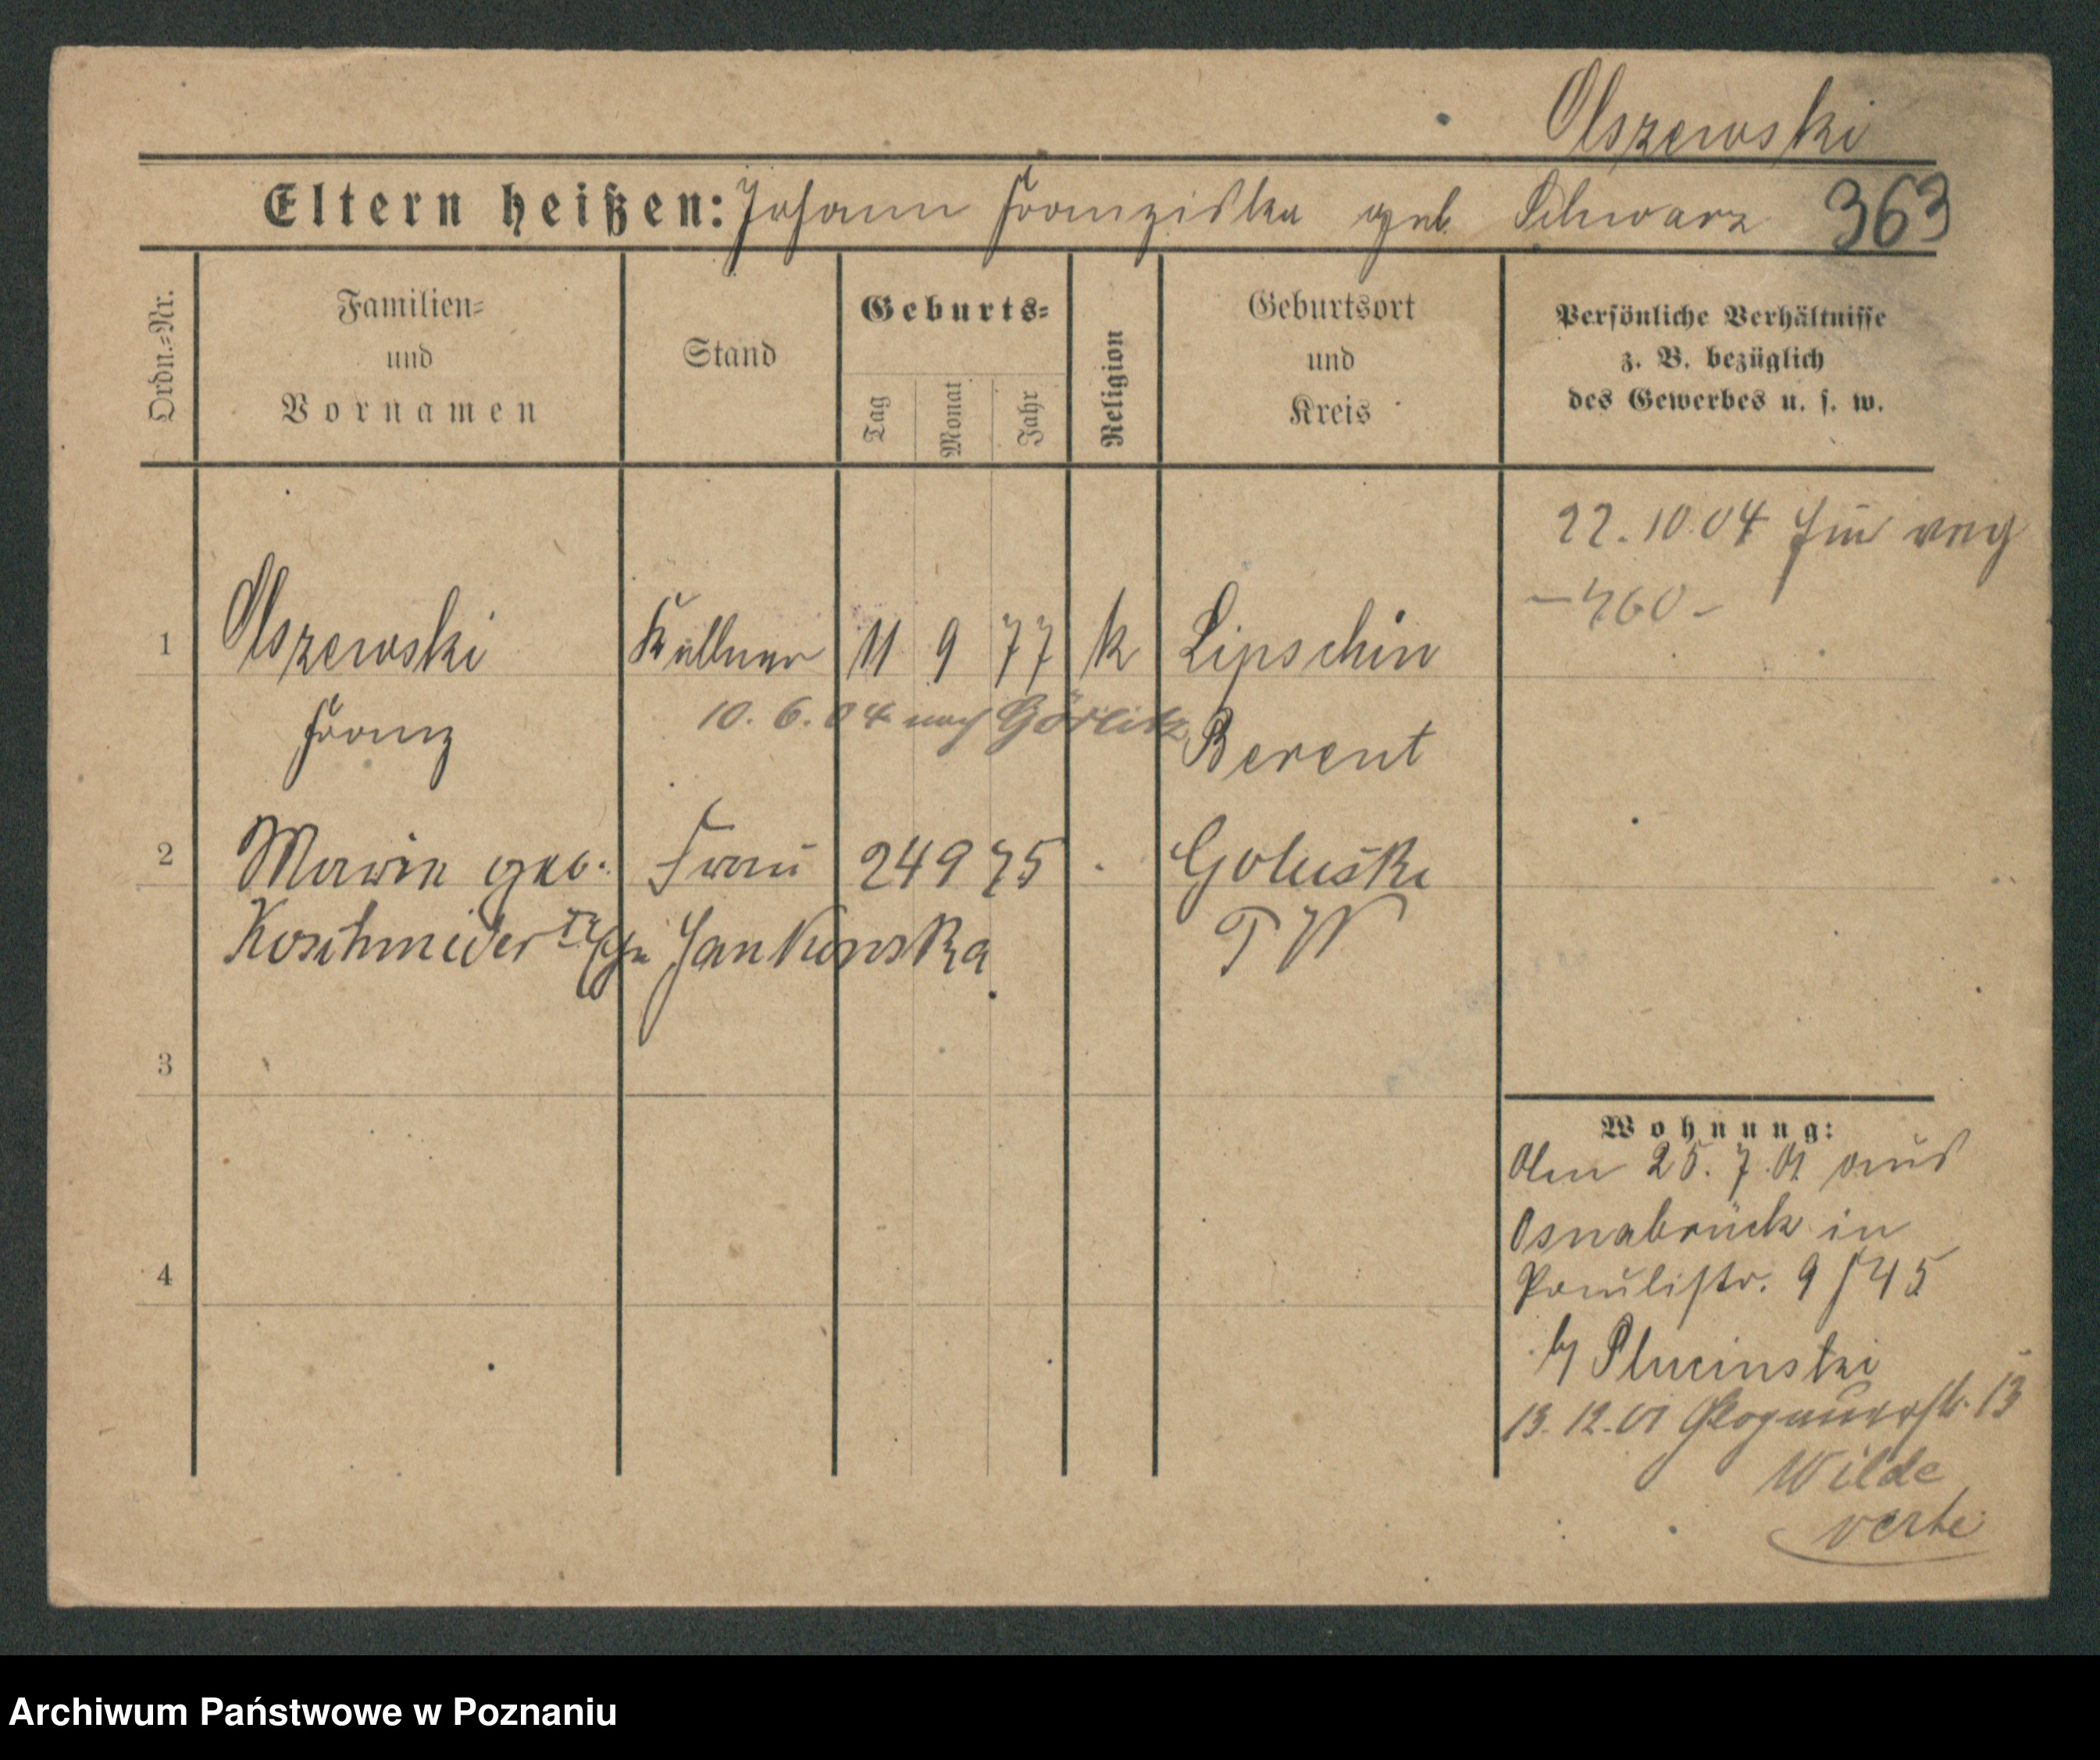 Olszewski
Eltern heißen: Johann Franziska geb. Schwarz 363
Ordn.-Nr.
Familien-
und
Vornamen
Stand
Geburts-
Tag
Monat
Jahr
Religion
Geburtsort
und
Kreis
Persönliche Verhältnisse
z. B. bezüglich
des Gewerbes u. s. w.
22.10.04 weg
1 Olszewski Kellner 11 9 77 k Lipschin
10.6.04 nach Görlitz
Franz Berent
2 Marie geb. Frau 24 9 75 Goluski
Koschmider Jankowska P W
3
4
Wohnung:
Am 25.7.01 aus
Osnabrück in
Paulistr. 9 45
b/ Plucinski
13.12.01 Glogauerstr. 13
Wilde
verte
Archiwum Państwowe w Poznaniu